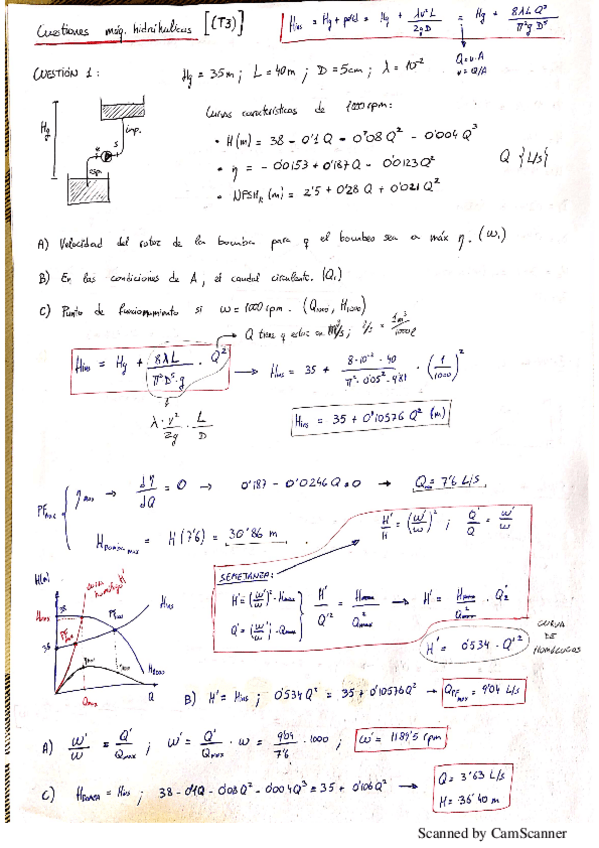 Cuestiones máq. hidráulicas [(T3)]
Hins = Hg + pérd = Hg + λv²L/2gD = Hg + 8λLQ²/π²gD⁵
Q = v·A
v = Q/A
CUESTIÓN 1: Hg = 35m ; L = 40m ; D = 5cm ; λ = 10⁻²
Hg
imp.
s
e
asp.
Curvas características de 1000 rpm:
• H(m) = 38 - 0'1Q - 0'08Q² - 0'004Q³
• η = -0'0153 + 0'187Q - 0'0123Q²
• NPSHR (m) = 2'5 + 0'28Q + 0'021Q²
Q {L/s}
A) Velocidad del rotor de la bomba para q el bombeo sea a máx η. (W₁)
B) En las condiciones de A, el caudal circulante. (Q₁)
C) Punto de funcionamiento si ω = 1000 rpm. (Q1000, H1000)
Q tiene q estar en m³/s ; l/s = 1m³/1000l
Hins = Hg + 8λL/π²D⁵·g · Q² → Hins = 35 + 8·10⁻²·40/π²·0'05⁵·9'81 · (1/1000)²
λ · v²/2g · L/D
Hins = 35 + 0'10576 Q² (m)
PFmax { ηmax → dη/dQ = 0 → 0'187 - 0'0246Q = 0 → Qmax = 7'6 L/s
Hbomba max = H(7'6) = 30'86 m
H'/H = (W'/W)² ; Q'/Q = W'/W
SEMEJANZA:
H' = (W'/W)² · Hmax
Q' = (W'/W) · Qmax
H'/Q'² = Hmax/Q²max → H' = Hmax/Q²max · Q'²
H' = 0'534 · Q'²
CURVA DE HOMÓLOGOS
H(m)
curva homólogos H'
Hins
38
35
H1000
Q
B) H' = Hins ; 0'534Q² = 35 + 0'10576Q² → QPFmax = 9'04 L/s
A) W'/W = Q'/Qmax ; W' = Q'/Qmax · W = 9'04/7'6 · 1000 ; W' = 1189'5 rpm
C) HBOMBA = Hins ; 38 - 0'1Q - 0'08Q² - 0'004Q³ = 35 + 0'106Q² → Q = 3'63 L/s
H = 36'40 m
Scanned by CamScanner